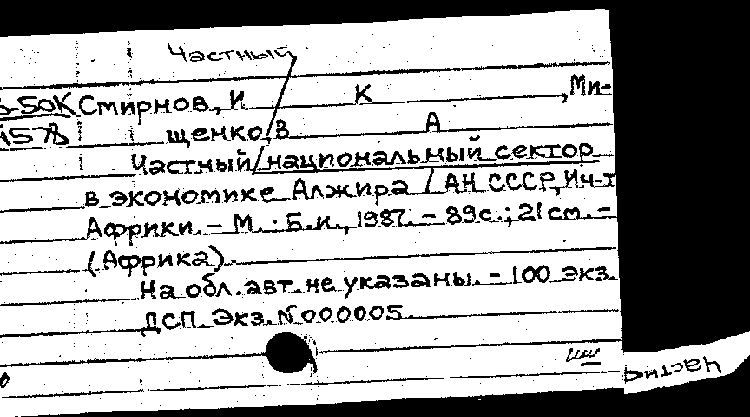 Частный
Б-50К Смирнов, И К , Ми-
щенко, В А
Частный/национальный сектор
в экономике Алжира / АН СССР, Ин-т
Африки. - М.: Б.и., 1987. - 89 с.; 21 см. -
(Африка).
На обл. авт. не указаны. - 100 экз.
ДСП. Экз. N 000005